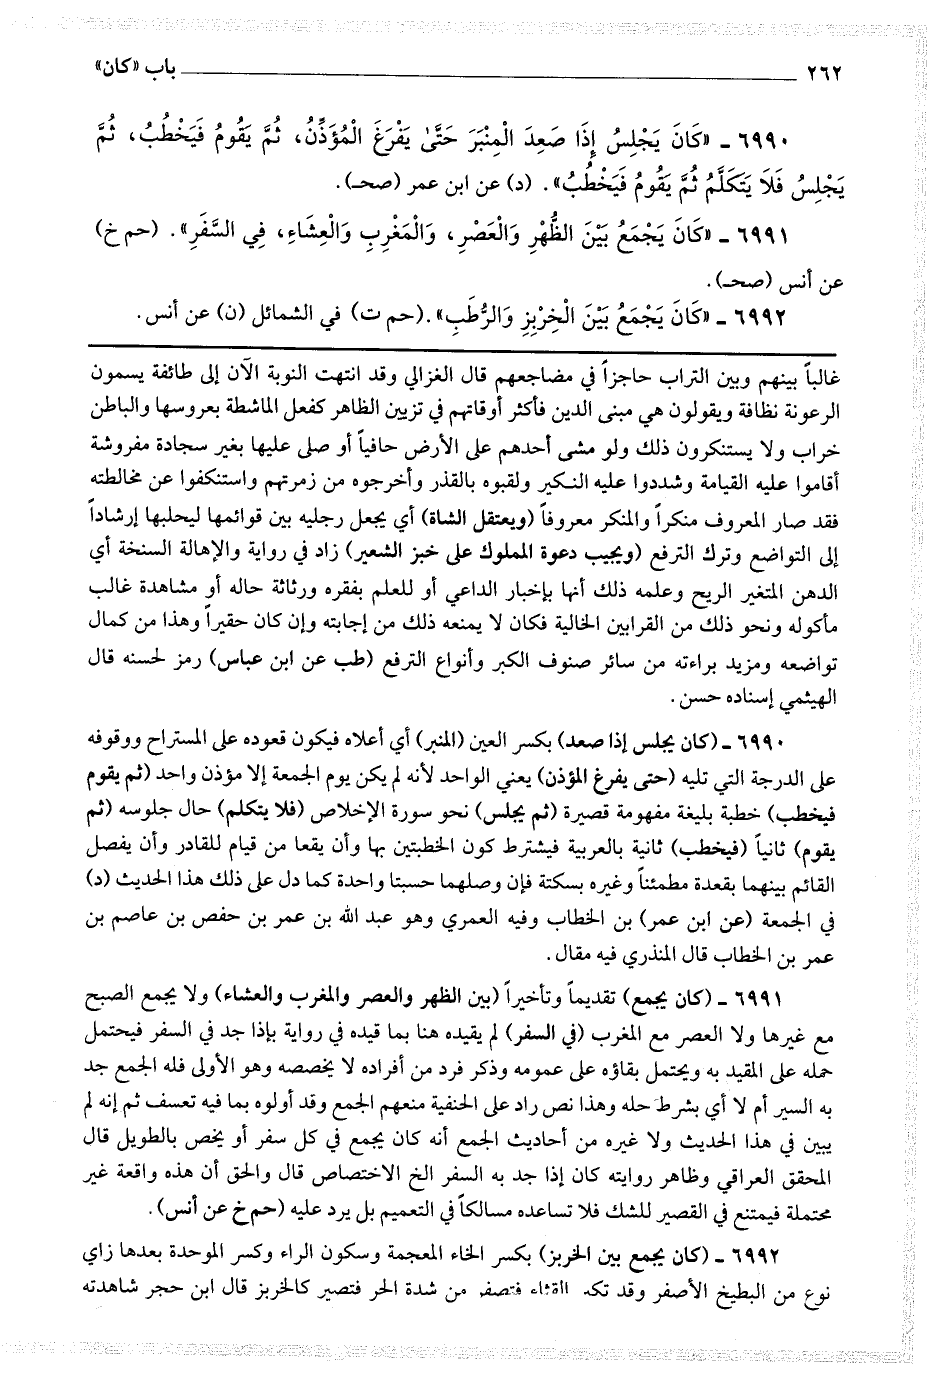 ٢٦٢ باب «كان»
٦٩٩٠ ـ «كَانَ يَجْلِسُ إِذَا صَعِدَ الْمِنْبَرَ حَتَّى يَفْرَغَ الْمُؤَذِّنُ، ثُمَّ يَقُومُ فَيَخْطُبُ، ثُمَّ
يَجْلِسُ فَلَا يَتَكَلَّمُ ثُمَّ يَقُومُ فَيَخْطُبُ». (د) عن ابن عمر (صحـ).
٦٩٩١ ـ «كَانَ يَجْمَعُ بَيْنَ الظُّهْرِ وَالْعَصْرِ، وَالْمَغْرِبِ وَالْعِشَاءِ، فِي السَّفَرِ». (حم خ)
عن أنس (صحـ).
٦٩٩٢ ـ «كَانَ يَجْمَعُ بَيْنَ الْخِرْبِزِ وَالرُّطَبِ». (حم ت) في الشمائل (ن) عن أنس.
غالباً بينهم وبين التراب حاجزاً في مضاجعهم قال الغزالي وقد انتهت النوبة الآن إلى طائفة يسمون
الرعونة نظافة ويقولون هي مبنى الدين فأكثر أوقاتهم في تزيين الظاهر كفعل الماشطة بعروسها والباطن
خراب ولا يستنكرون ذلك ولو مشى أحدهم على الأرض حافياً أو صلى عليها بغير سجادة مفروشة
أقاموا عليه القيامة وشددوا عليه النكير ولقبوه بالقذر وأخرجوه من زمرتهم واستنكفوا عن مخالطته
فقد صار المعروف منكراً والمنكر معروفاً (ويعتقل الشاة) أي يجعل رجليه بين قوائمها ليحلبها إرشاداً
إلى التواضع وترك الترفع (ويجيب دعوة المملوك على خبز الشعير) زاد في رواية والإهالة السنخة أي
الدهن المتغير الريح وعلمه ذلك أنها بإخبار الداعي أو للعلم بفقره ورثاثة حاله أو مشاهدة غالب
مأكوله ونحو ذلك من القرابين الخالية فكان لا يمنعه ذلك من إجابته وإن كان حقيراً وهذا من كمال
تواضعه ومزيد براءته من سائر صنوف الكبر وأنواع الترفع (طب عن ابن عباس) رمز لحسنه قال
الهيثمي إسناده حسن.
٦٩٩٠ ـ (كان يجلس إذا صعد) بكسر العين (المنبر) أي أعلاه فيكون قعوده على المستراح ووقوفه
على الدرجة التي تليه (حتى يفرغ المؤذن) يعني الواحد لأنه لم يكن يوم الجمعة إلا مؤذن واحد (ثم يقوم
فيخطب) خطبة بليغة مفهومة قصيرة (ثم يجلس) نحو سورة الإخلاص (فلا يتكلم) حال جلوسه (ثم
يقوم) ثانياً (فيخطب) ثانية بالعربية فيشترط كون الخطبتين بها وأن يقعا من قيام للقادر وأن يفصل
القائم بينهما بقعدة مطمئناً وغيره بسكتة فإن وصلهما حسبتا واحدة كما دل على ذلك هذا الحديث (د)
في الجمعة (عن ابن عمر) بن الخطاب وفيه العمري وهو عبد الله بن عمر بن حفص بن عاصم بن
عمر بن الخطاب قال المنذري فيه مقال.
٦٩٩١ ـ (كان يجمع) تقديماً وتأخيراً (بين الظهر والعصر والمغرب والعشاء) ولا يجمع الصبح
مع غيرها ولا العصر مع المغرب (في السفر) لم يقيده هنا بما قيده في رواية بإذا جد في السفر فيحتمل
حمله على المقيد به ويحتمل بقاؤه على عمومه وذكر فرد من أفراده لا يخصصه وهو الأولى فله الجمع جد
به السير أم لا أي بشرط حله وهذا نص راد على الحنفية منعهم الجمع وقد أولوه بما فيه تعسف ثم إنه لم
يبين في هذا الحديث ولا غيره من أحاديث الجمع أنه كان يجمع في كل سفر أو يخص بالطويل قال
المحقق العراقي وظاهر روايته كان إذا جد به السفر الخ الاختصاص قال والحق أن هذه واقعة غير
محتملة فيمتنع في القصير للشك فلا تساعده مسالكاً في التعميم بل يرد عليه (حم خ عن أنس).
٦٩٩٢ ـ (كان يجمع بين الخربز) بكسر الخاء المعجمة وسكون الراء وكسر الموحدة بعدها زاي
نوع من البطيخ الأصفر وقد القثاء فتصفر من شدة الحر فتصير كالخربز قال ابن حجر شاهدته